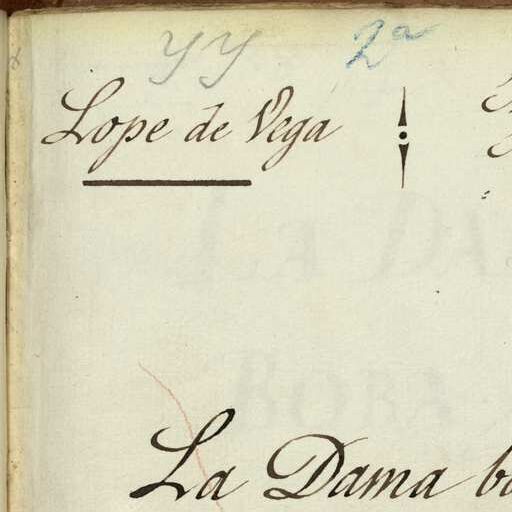 yy 2ª
Lope de Vega
La Dama